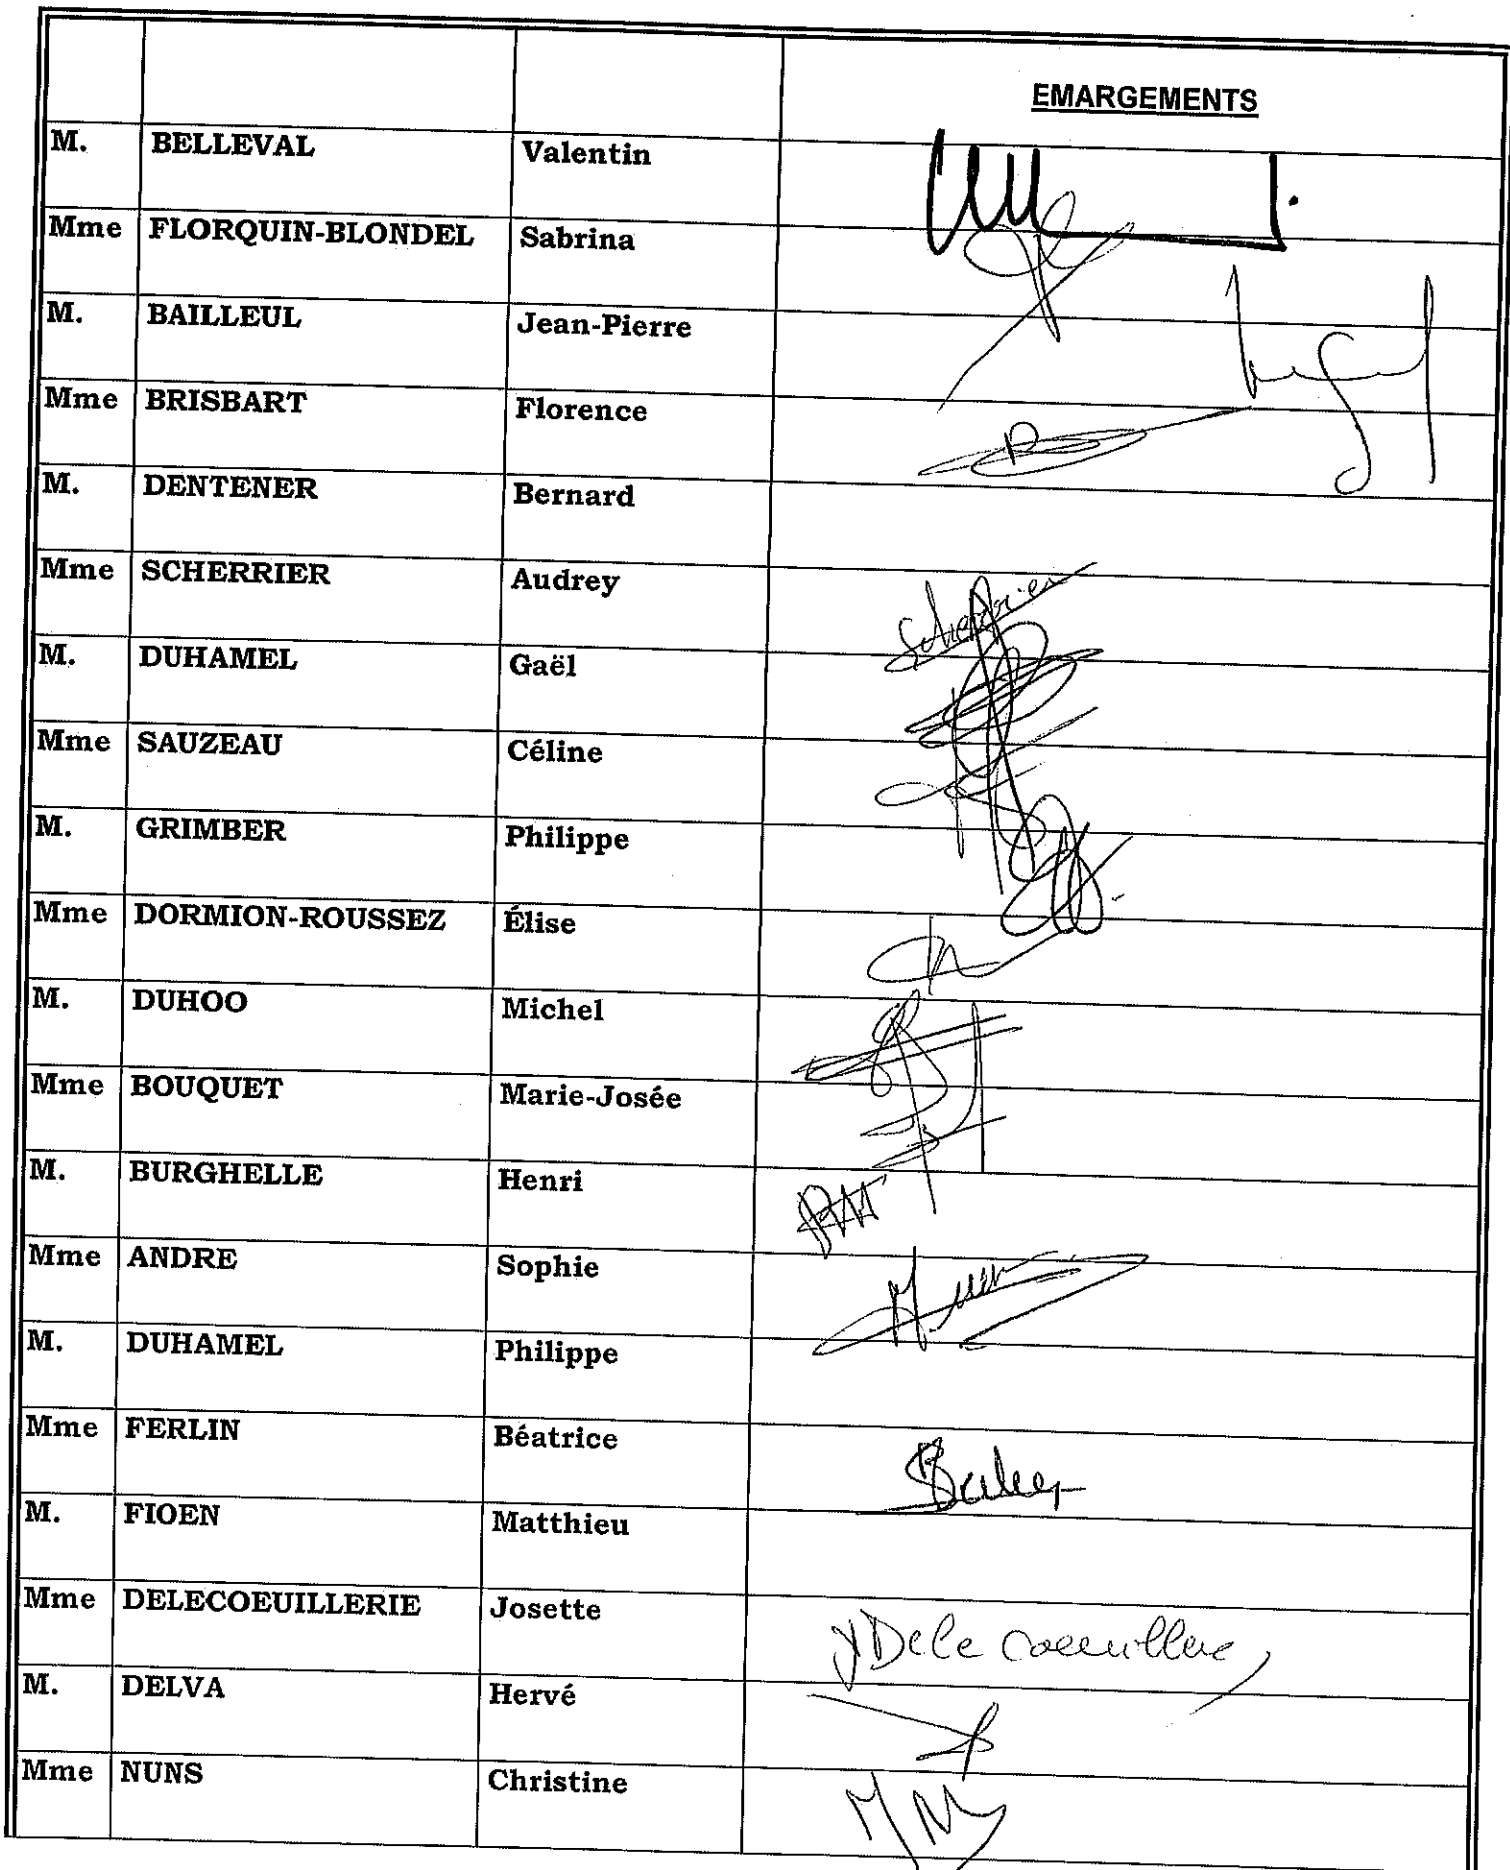 EMARGEMENTS
M. BELLEVAL Valentin
Mme FLORQUIN-BLONDEL Sabrina
M. BAILLEUL Jean-Pierre
Mme BRISBART Florence
M. DENTENER Bernard
Mme SCHERRIER Audrey Scherrier
M. DUHAMEL Gaël
Mme SAUZEAU Céline
M. GRIMBER Philippe
Mme DORMION-ROUSSEZ Élise
M. DUHOO Michel
Mme BOUQUET Marie-Josée
M. BURGHELLE Henri
Mme ANDRE Sophie
M. DUHAMEL Philippe
Mme FERLIN Béatrice
M. FIOEN Matthieu
Mme DELECOEUILLERIE Josette
M. DELVA Hervé
Mme NUNS Christine